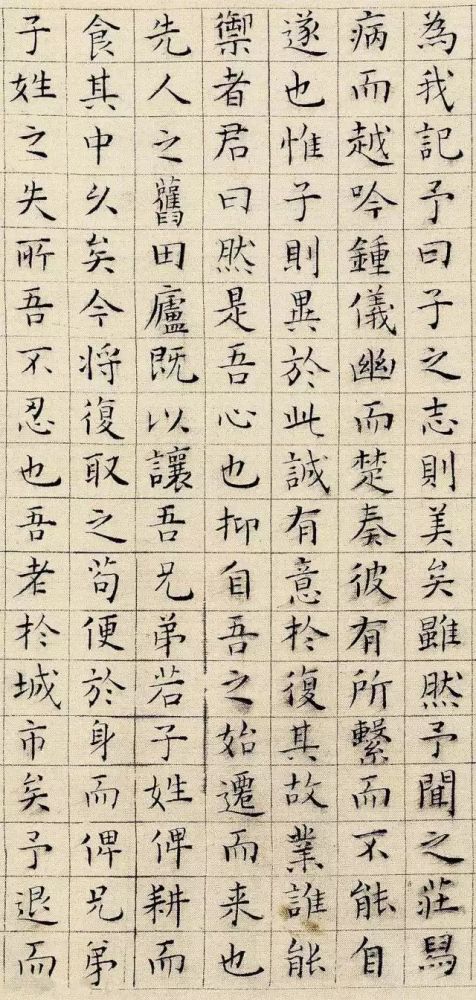 為我記予曰子之志則美矣雖然予聞之莊舄
病而越吟鍾儀幽而楚奏彼有所繫而不能自
遂也惟子則異於此誠有意於復其故業誰能
禦者君曰然是吾心也抑自吾之始遷而来也
先人之舊田廬既以讓吾兄弟若子姓俾耕而
食其中久矣今将復取之苟便於身而俾兄弟
子姓之失所吾不忍也吾老扵城市矣予退而